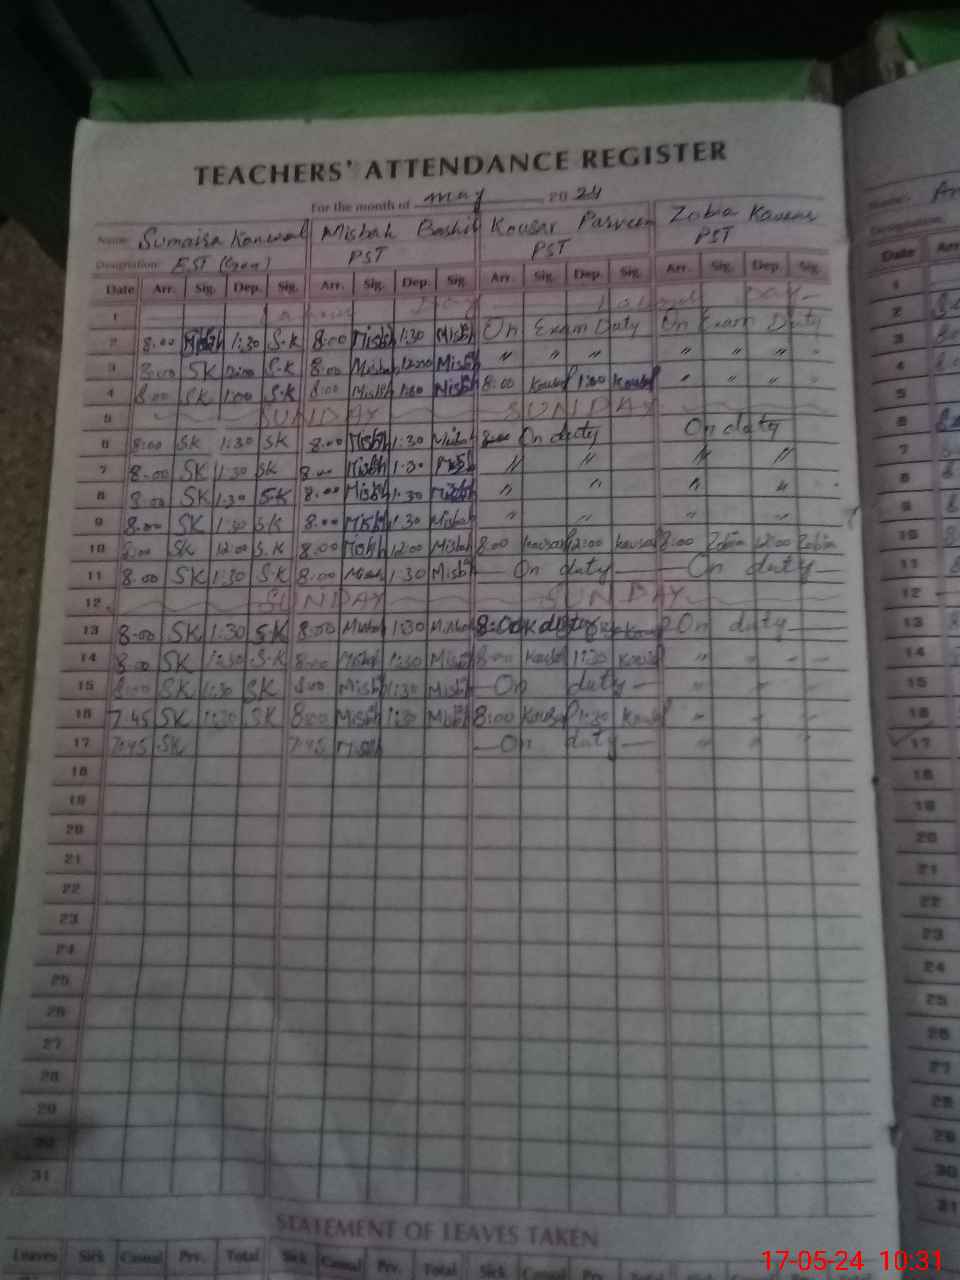 TEACHERS' ATTENDANCE REGISTER
For the month of may 2024
Name: Sumaira Kanwal Misbah Bashir Kousar Parveen Zobia Kausar
Designation: EST (Gen) PST PST PST
Date Arr. Sig. Dep. Sig. Arr. Sig. Dep. Sig. Arr. Sig. Dep. Sig. Arr. Sig. Dep. Sig.
1 Labour Day Labour Day
2 8:00 1:30 S.K 8:00 Misbh 1:30 Misbh On Exam Duty On Exam Duty
3 8:00 SK 12:00 S.K 8:00 Misbah 12:00 Misbh " " " " " " "
4 8:00 SK 1:00 S.K 8:00 Misbh 1:00 Misbh 8:00 Kousar 1:00 Kousar " " " "
5 SUNDAY SUNDAY
6 8:00 SK 1:30 SK 8:00 Misbh 1:30 Misbah On duty On duty
7 8:00 SK 1:30 SK 8:00 Misbh 1:30 Misbh " " " "
8 8:00 SK 1:30 S.K 8:00 Misbh 1:30 Misbh " " " "
9 8:00 SK 1:30 SK 8:00 Misbh 1:30 Misbah " " " "
10 8:00 SK 12:00 S.K 8:00 Misbh 12:00 Misbah 8:00 Kousar 12:00 Kousar 8:00 Zobia 12:00 Zobia
11 8:00 SK 1:30 S.K 8:00 Misbh 1:30 Misbh On duty On duty
12 SUNDAY SUNDAY
13 8:00 SK 1:30 S.K 8:00 Misbah 1:30 Misbah 8:00 On duty
14 8:00 SK 1:30 S.K 8:00 Misbh 1:30 Misbh 8:00 Kousar 1:30 Kousar "
15 8:00 SK 1:30 SK 8:00 Misbh 1:30 Misbh On duty " " "
16 7:45 SK 1:30 SK 8:00 Misbh 1:30 Misbh 8:00 Kousar 1:30 Kousar " " "
17 7:45 SK 7:45 Misbh On duty " " "
18
19
20
21
22
23
24
25
26
27
28
29
30
31
STATEMENT OF LEAVES TAKEN
Leaves Sick Casual Prv. Total Sick Casual Prv. Total Sick Casual Prv. Total Sick Casual Prv.
Name:
Designation:
Date Arr
1
2
3
4
5
6
7
8
9
10
11
12
13
14
15
16
17
18
19
20
21
22
23
24
25
26
27
28
29
30
31
17-05-24 10:31